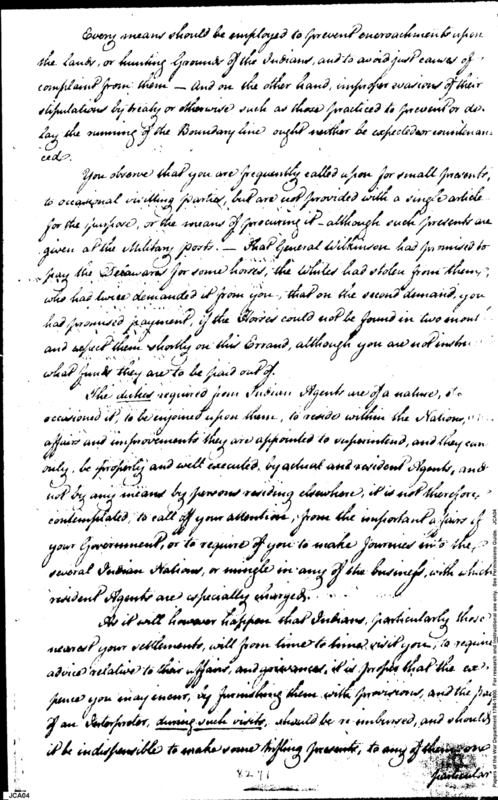 Every means should be employed to prevent encroachments upon
the Lands, or hunting Grounds of the Indians, and to avoid just causes of
complaint from them — And on the other hand, improper evasions of their
stipulations by treaty or otherwise such as those practiced to prevent or de-
lay the running of the Boundary line ought neither be expected or countenan-
ced.
You observe that you are frequently called upon for small presents,
to occasional visitting parties, but are not provided with a single article
for the purpose, or the means of procuring it - although such presents are
given at the Military posts. — That General Wilkinson had promised to
pay the Delawares for some horses, the Whites had stolen from them,
who had twice demanded it from you, that on the second demand, you
had promised payment, if the Horses could not be found in two mont
and expect them shortly on this Errand, although you are not instru
what funds they are to be paid out of.
The duties required from Indian Agents are of a nature,
occasioned it, to be enjoined upon them, to reside within the Nations,
affairs and improvements they are appointed to superintend, and they can
only, be properly and well executed, by actual and resident Agents, and
not by any means by persons residing elsewhere, it is not therefore,
contemplated, to call off your attention, from the important affairs of
your Government, or to require of you to make Journies into the,
several Indian Nations, or mingle in any of the business, with which
resident Agents are especially charged.
As it will however happen that Indians, particularly those
nearest your settlements, will from time to time visit you, to require
advice relative to their affairs, and grievances, it is proper that the ex-
pence you may incur, by furnishing them with provisions, and the pay
of an Interpreter, during such visits, should be re-imbursed, and should
it be indispensible to make some trifling presents, to any of them, one
particular
8271
JCA04
Papers of the War Department 1784-1800. For research and instructional use only. See Permissions Guide. JCA04